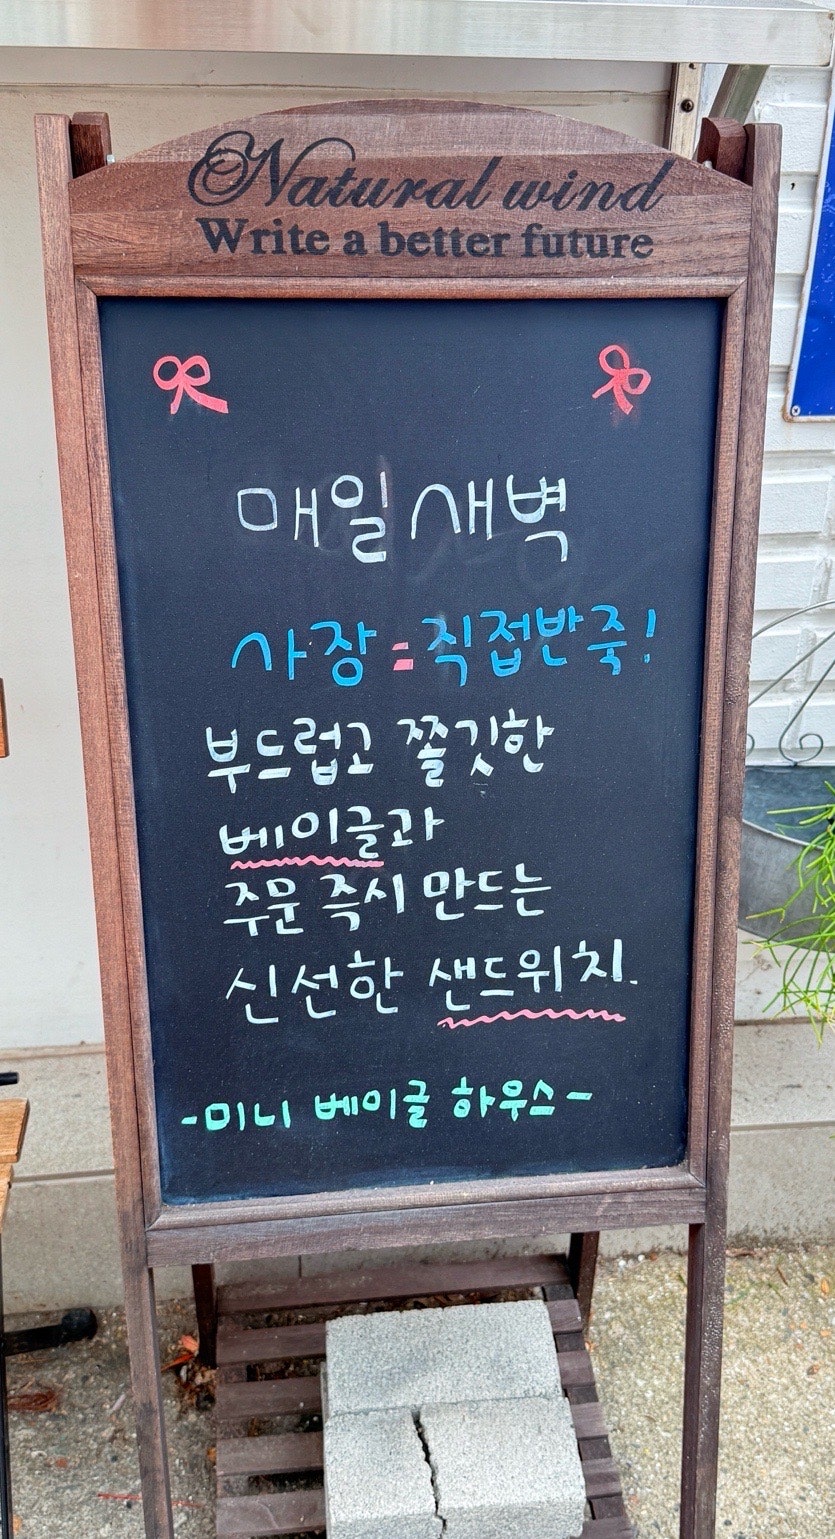 Natural wind
Write a better future
매일 새벽
사장=직접반죽!
부드럽고 쫄깃한
베이글과
주문 즉시 만드는
신선한 샌드위치.
-미니 베이글 하우스-